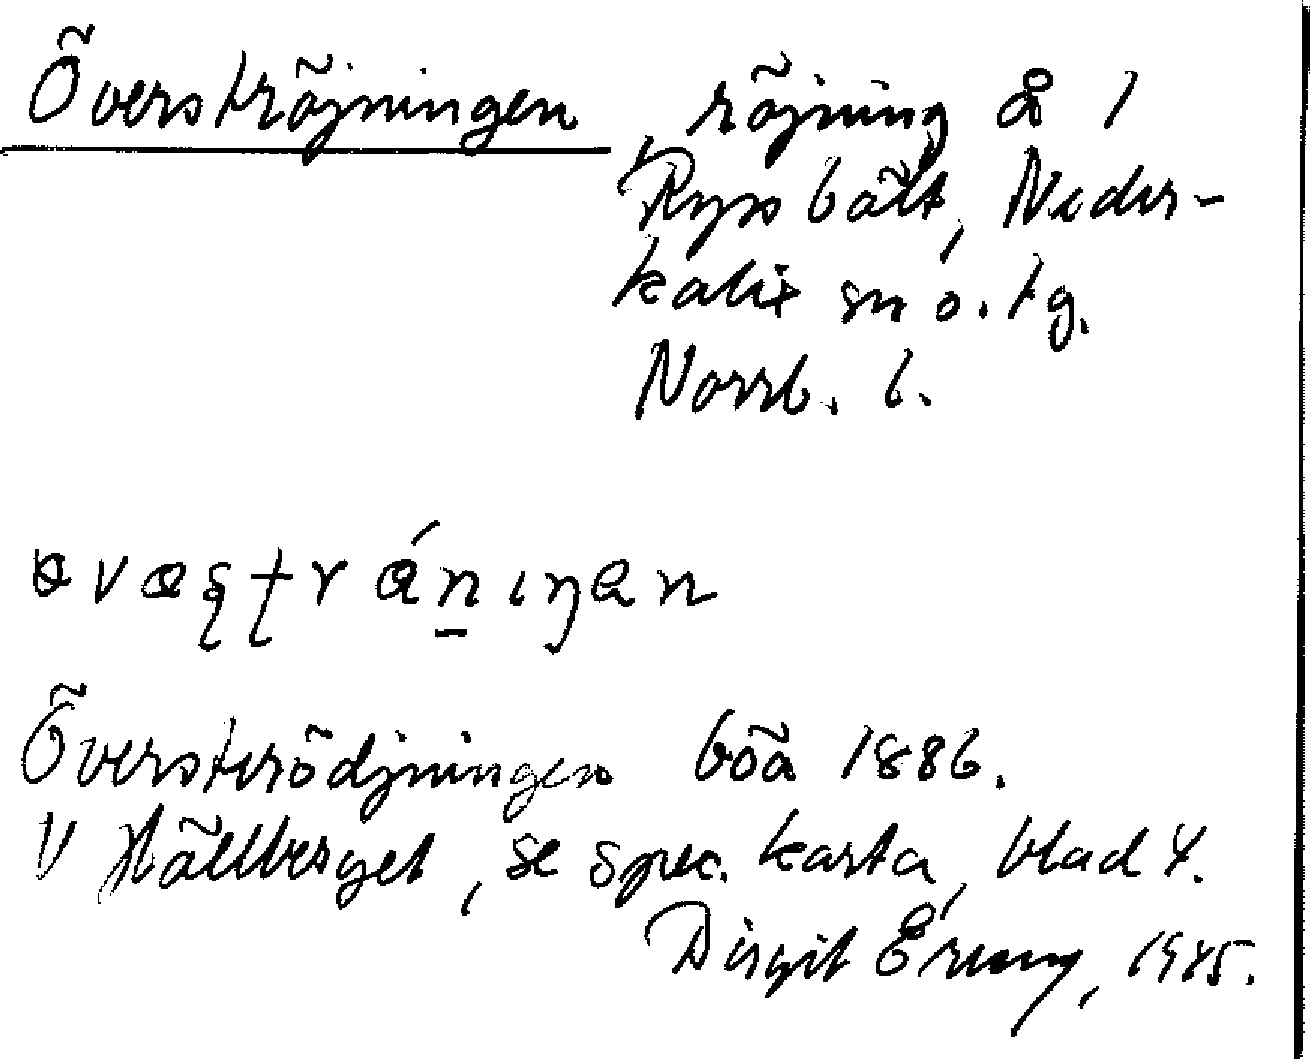 Överströjningen röjning å 1
Rysbält, Neder-
kalix sn o. tg.
Norrb. l.
Översterödjningen böa 1886.
V Hällberget, se spec. karta, blad 4.
Birgit 1945.